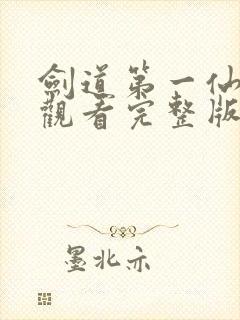 劍道第一仙
觀看完整版
墨北亦